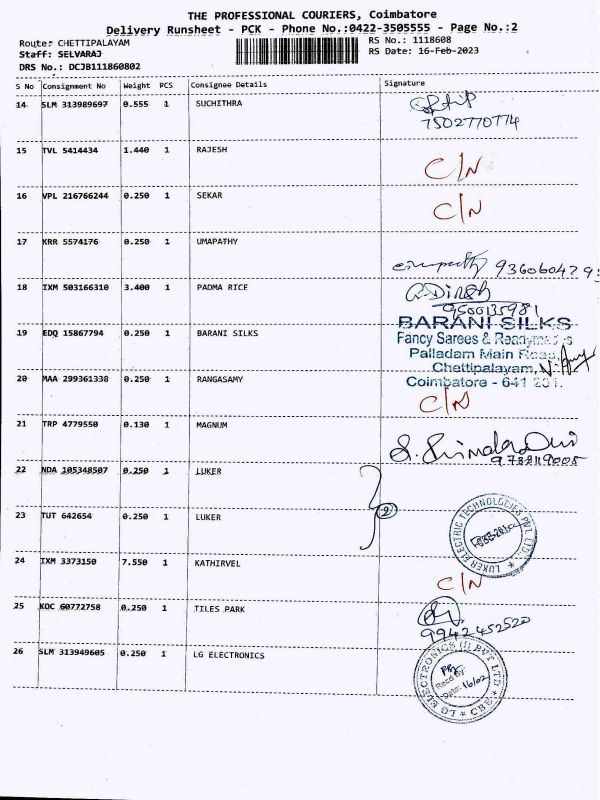 THE PROFESSIONAL COURIERS, Coimbatore
Delivery Runsheet - PCK - Phone No.:0422-3505555 - Page No.:2
Route: CHETTIPALAYAM
RS No.: 1118608
Staff: SELVARAJ
RS Date: 16-Feb-2023
DRS No.: DCJB111860802
S No Consignment No Weight PCS Consignee Details Signature
14 SLM 313989697 0.555 1 SUCHITHRA
7502770774
15 TVL 5414434 1.440 1 RAJESH C/N
16 VPL 216766244 0.250 1 SEKAR C/N
17 KRR 5574176 0.250 1 UMAPATHY
18 IXM 503166310 3.400 1 PADMA RICE
9500135981
19 EDQ 15867794 0.250 1 BARANI SILKS
BARANI SILKS
Fancy Sarees & Readymades
Palladam Main Road,
Chettipalayam,
Coimbatore - 641 201.
20 MAA 299361338 0.250 1 RANGASAMY C/N
21 TRP 4779550 0.130 1 MAGNUM
22 NDA 105348507 0.250 1 LUKER
2
23 TUT 642654 0.250 1 LUKER
LUKER ELECTRIC TECHNOLOGIES PVT. LTD.
24 IXM 3373150 7.550 1 KATHIRVEL C/N
25 KOC 60772758 0.250 1 TILES PARK
9942452520
26 SLM 313949605 0.250 1 LG ELECTRONICS
LG ELECTRONICS (I) PVT LTD
Recd By:
Date: 16/02
CBE